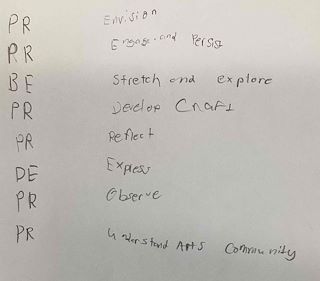 PR Envision
RR Engage and Persist
BE Stretch and explore
PR Develop Craft
PR Reflect
DE Express
PR Observe
PR Understand Arts Community